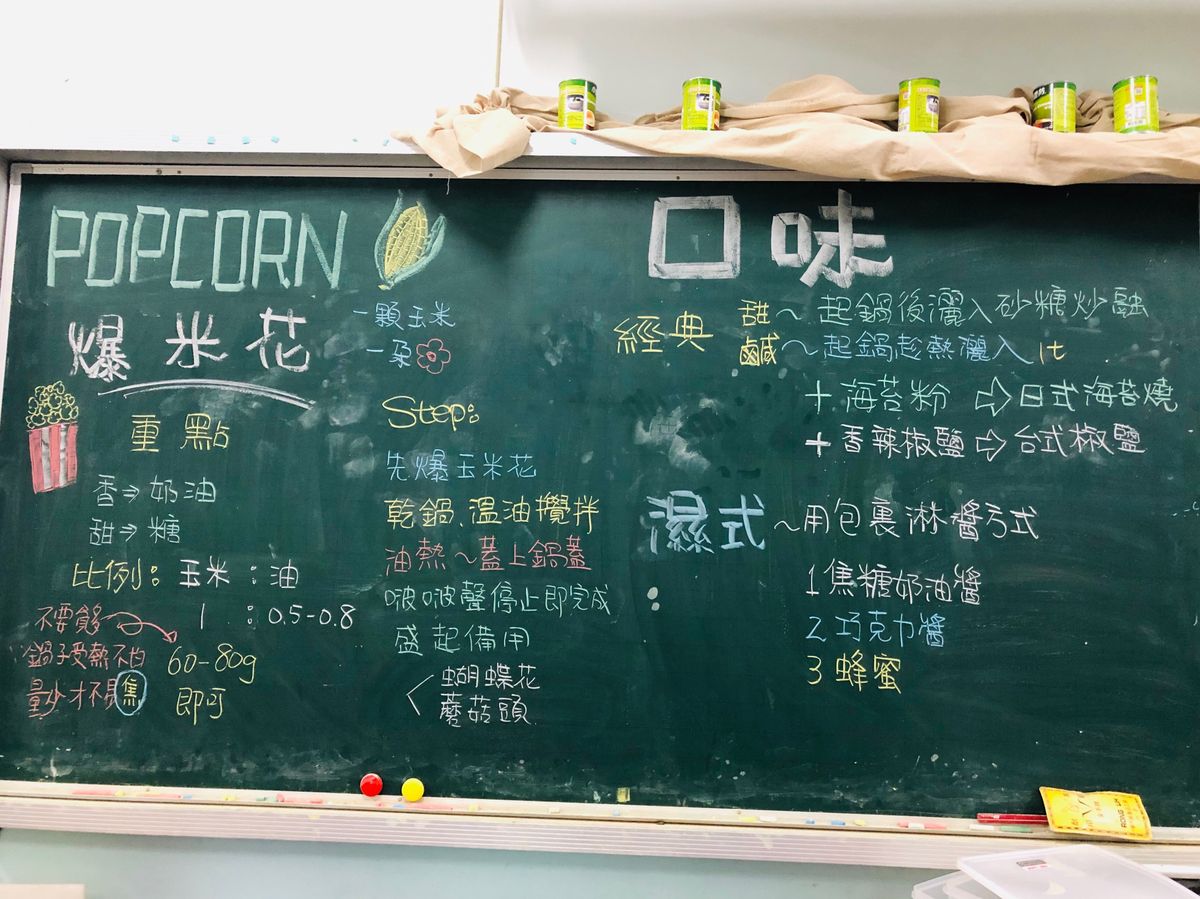 POPCORN
爆米花
一顆玉米
一朵
重點
香⇒奶油
甜⇒糖
比例：玉米：油
1 ：0.5-0.8
不要貪多
鍋子受熱不均
量少才不易焦
60-80g
即可
Step:
先爆玉米花
乾鍋、溫油攪拌
油熱～蓋上鍋蓋
啵啵聲停止即完成
盛起備用
蝴蝶花
蘑菇頭
口味
經典
甜～起鍋後灑入砂糖炒融
鹹～起鍋趁熱灑入 1t
＋海苔粉 ⇨日式海苔燒
＋香辣椒鹽⇨台式椒鹽
濕式～用包裹淋醬方式
1焦糖奶油醬
2巧克力醬
3蜂蜜